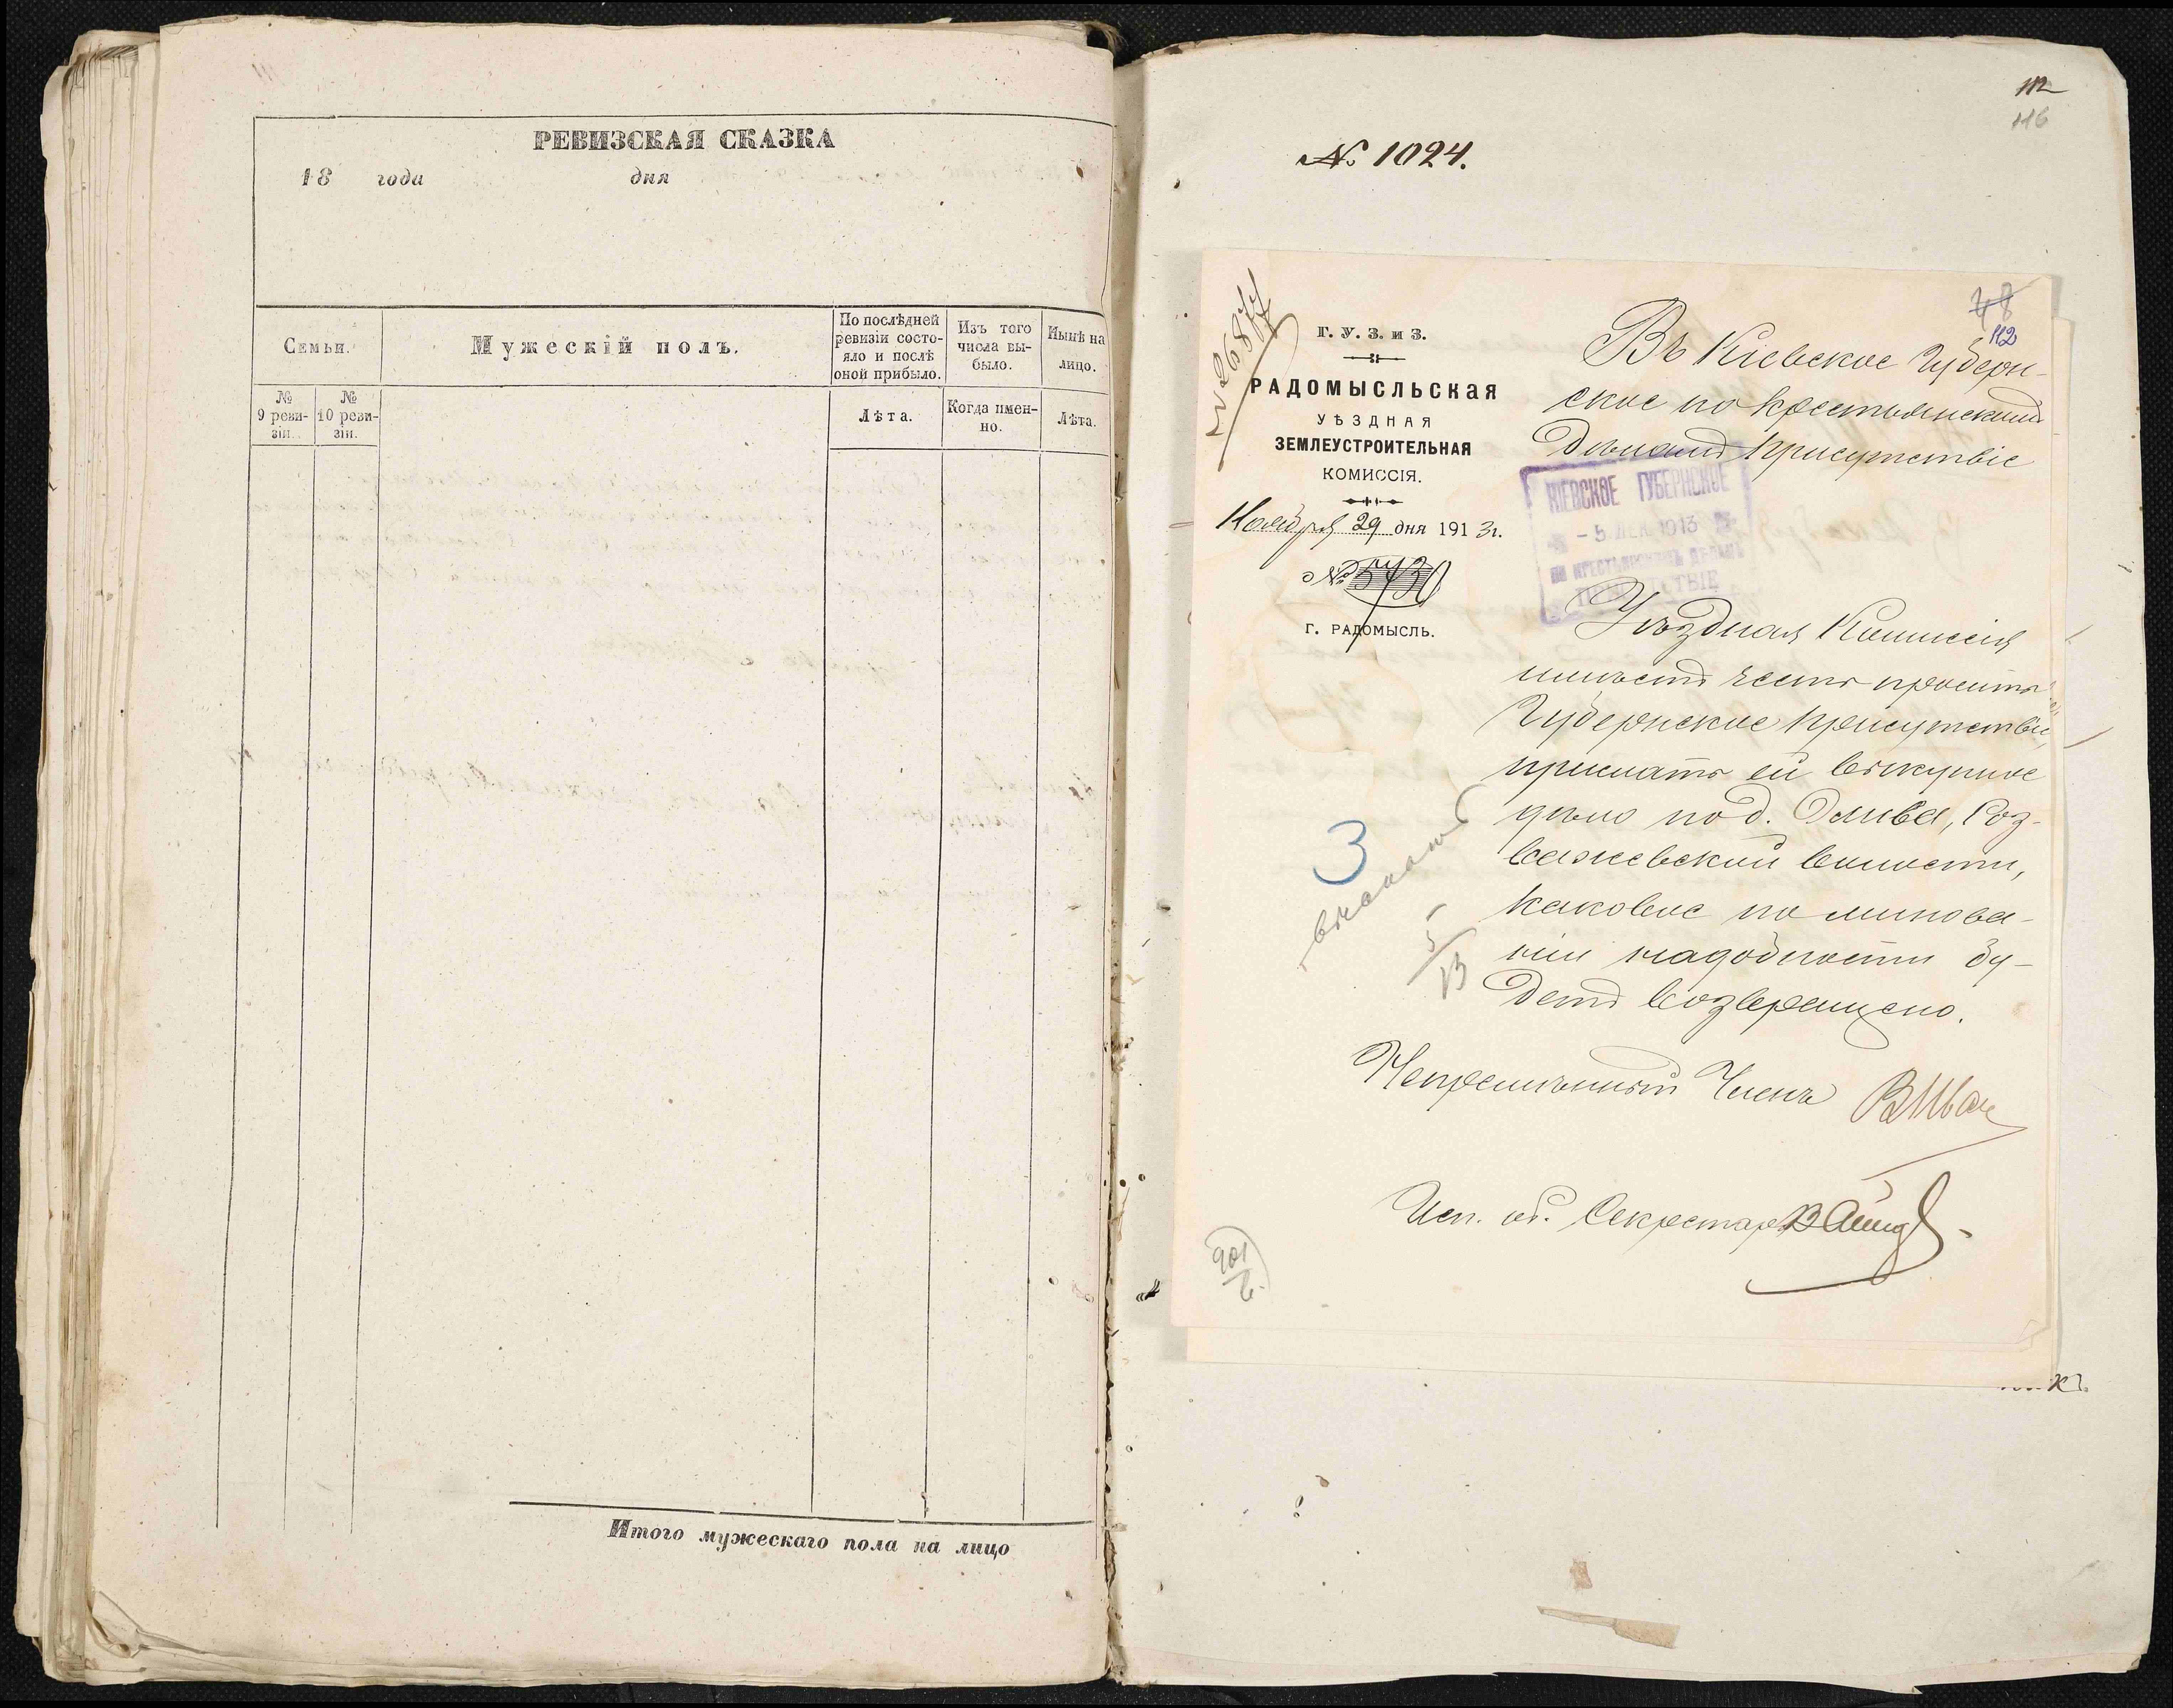 РЕВИЗСКАЯ СКАЗКА
18 года дня
Семьи.
Мужескій полъ.
По послѣдней
ревизіи состо-
яло и послѣ
оной прибыло.
Изъ того
числа вы-
было.
Нынѣ на
лицо.
№
9 реви-
зіи.
№
10 реви-
зіи.
Лѣта.
Когда имен-
но.
Лѣта.
Итого мужескаго пола на лицо
112
116
№ 1024.
48
112
Г. У. З. и З.
РАДОМЫСЛЬСКАЯ
УѢЗДНАЯ
ЗЕМЛЕУСТРОИТЕЛЬНАЯ
КОМИССІЯ.
Ноября 29 дня 1913 г.
№ 5730
Г. РАДОМЫСЛЬ.
Въ Кіевское Губерн-
ское по крестьянскимъ
дѣламъ Присутствіе
КІЕВСКОЕ ГУБЕРНСКОЕ
- 5 ДЕК 1913
ПО КРЕСТЬЯНСКИМЪ ДѢЛАМЪ
ПРИСУТСТВІЕ
Уѣздная Комиссія
имѣетъ честь просить
Губернское Присутствіе,
прислать ей выкупное
дѣло по д. Олива, Роз-
важевской волости,
каковое по минова-
ніи надобности бу-
детъ возвращено.
3
5/13
Непремѣнный Членъ
Исп. об. Секретаря
901